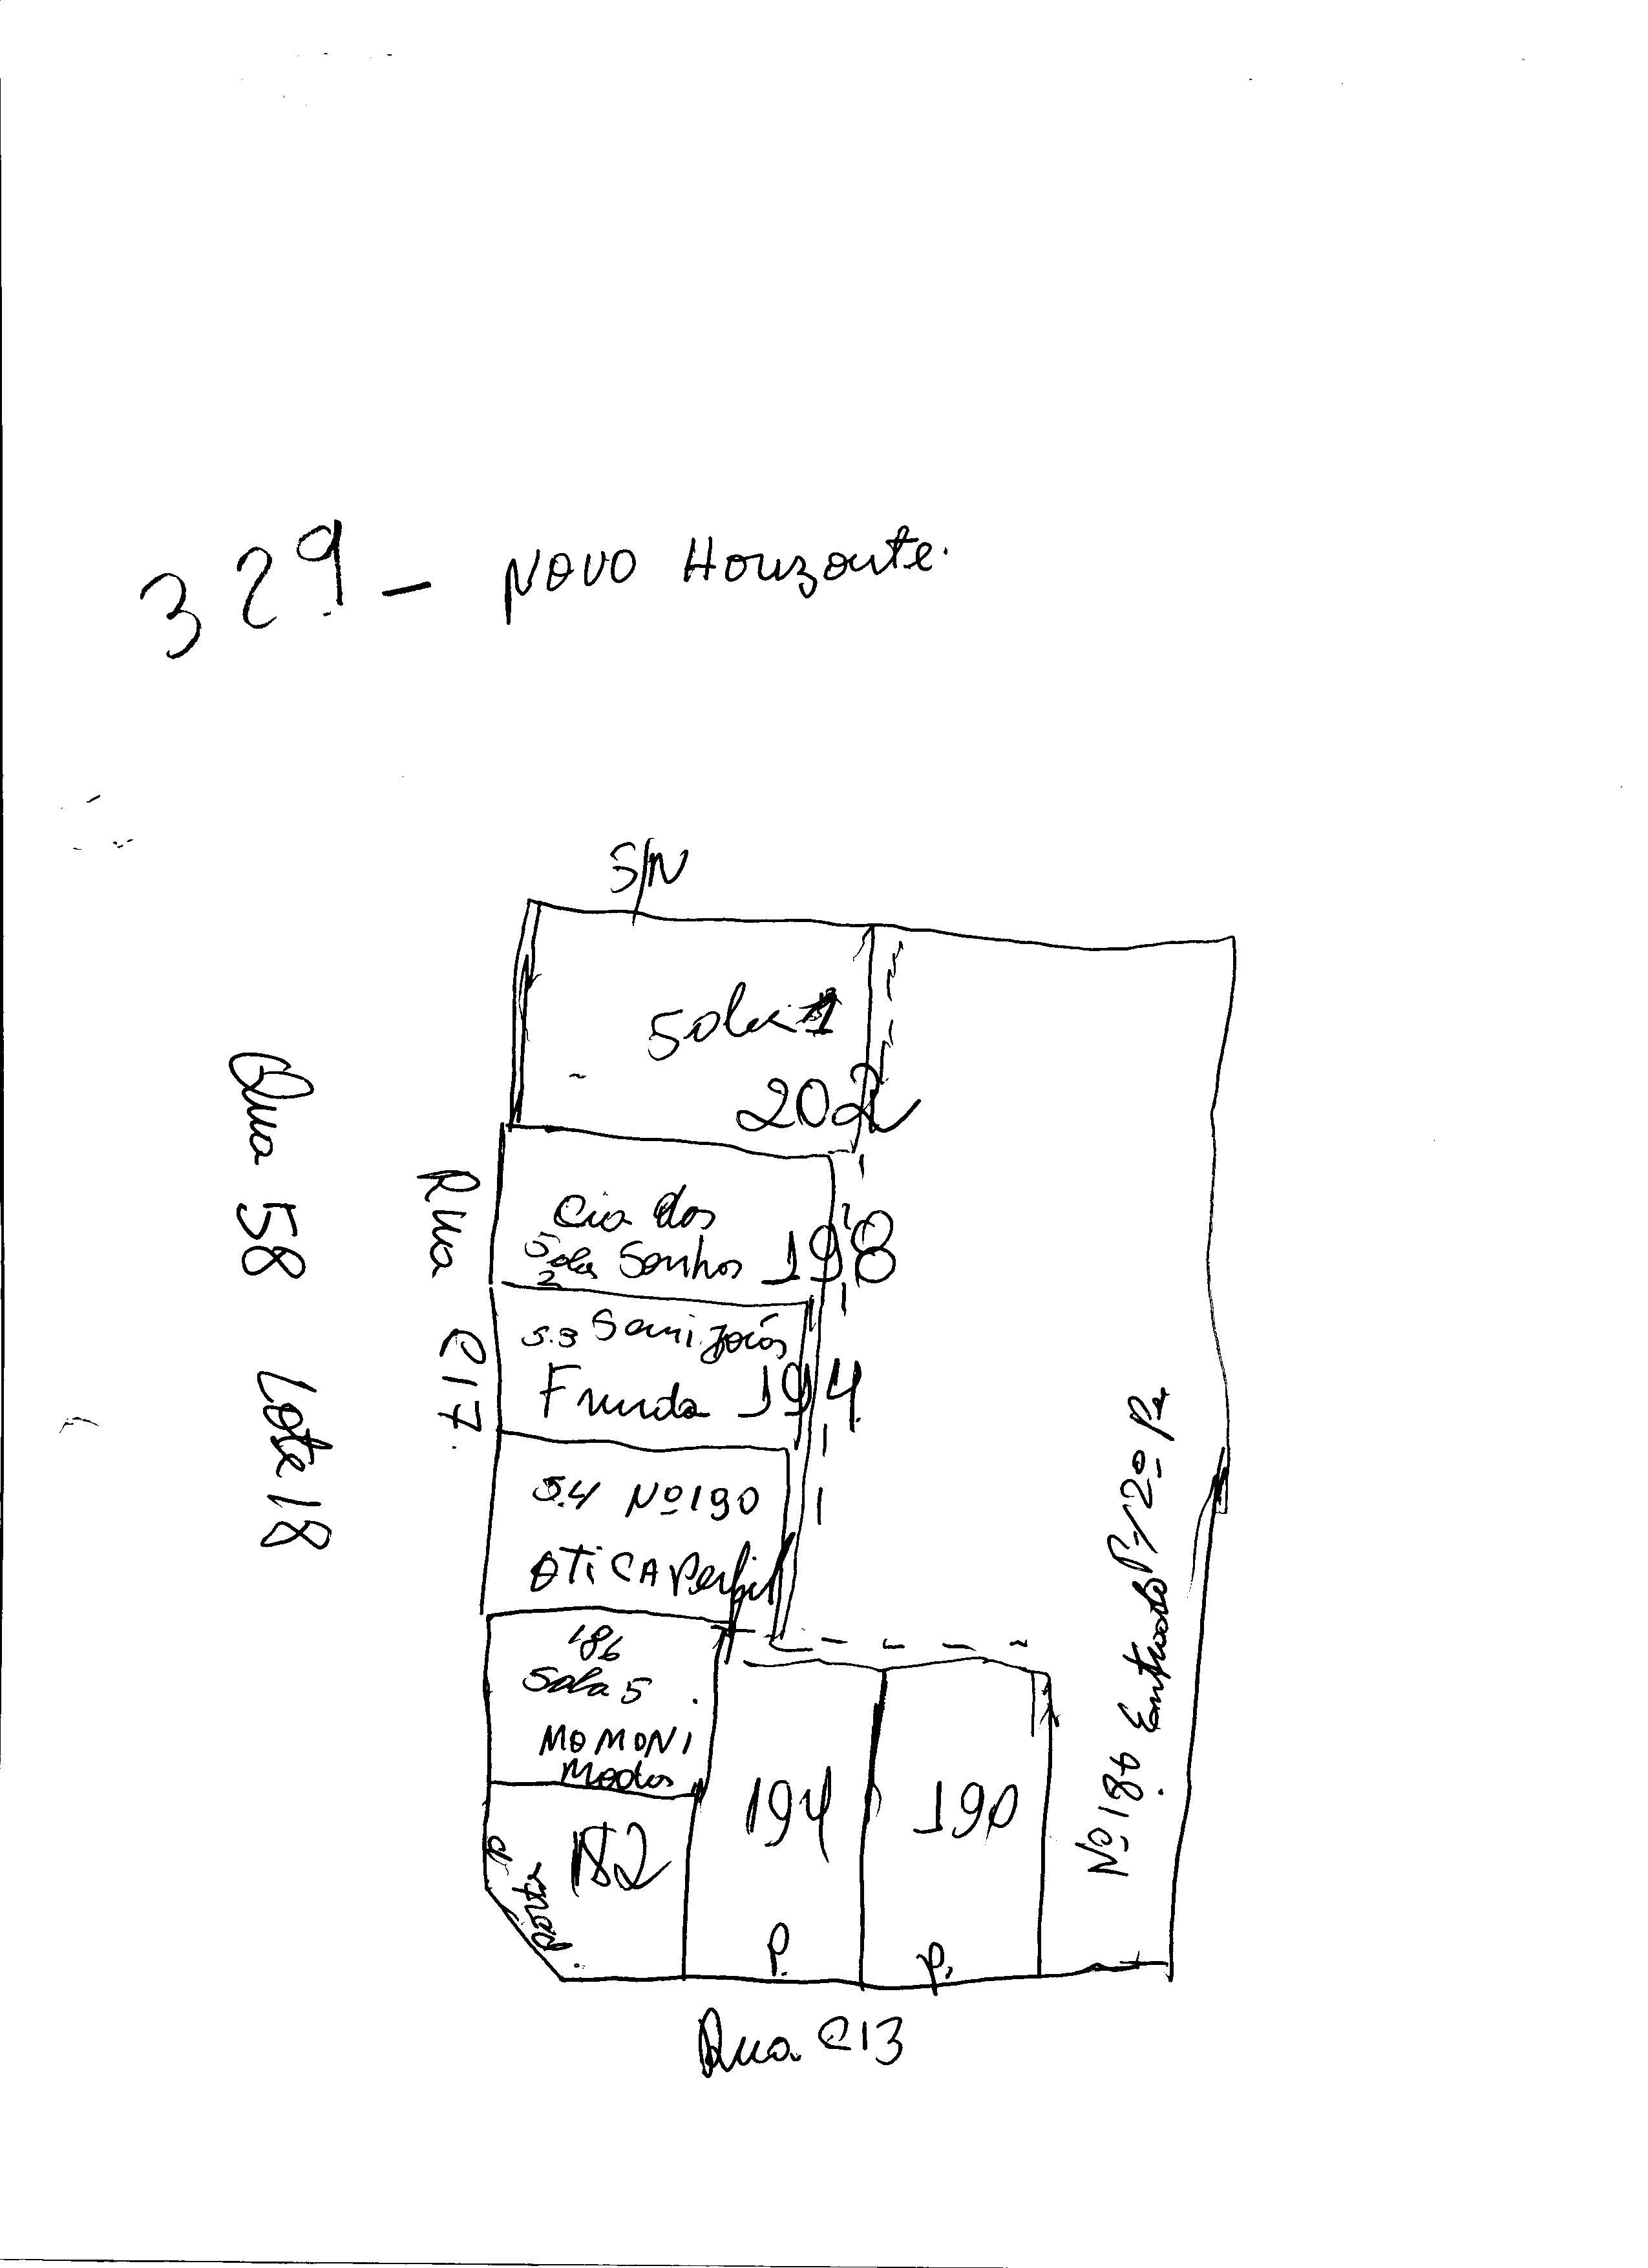 329 - NOVO Horizonte.
S/N
Sala 1
202
Qua 58 Lote 18
Rua C17.
Cia dos
Sala 2 Sonhos 198
S.3 Semi Joias
Fruida 194
S.4 Nº 190
OTICA Perfil
186
Sala 5
MOMONI
Modas
182
Porta
194
P.
190
P.
Nº 186 Entrada P/ 2º Pª
Rua C13